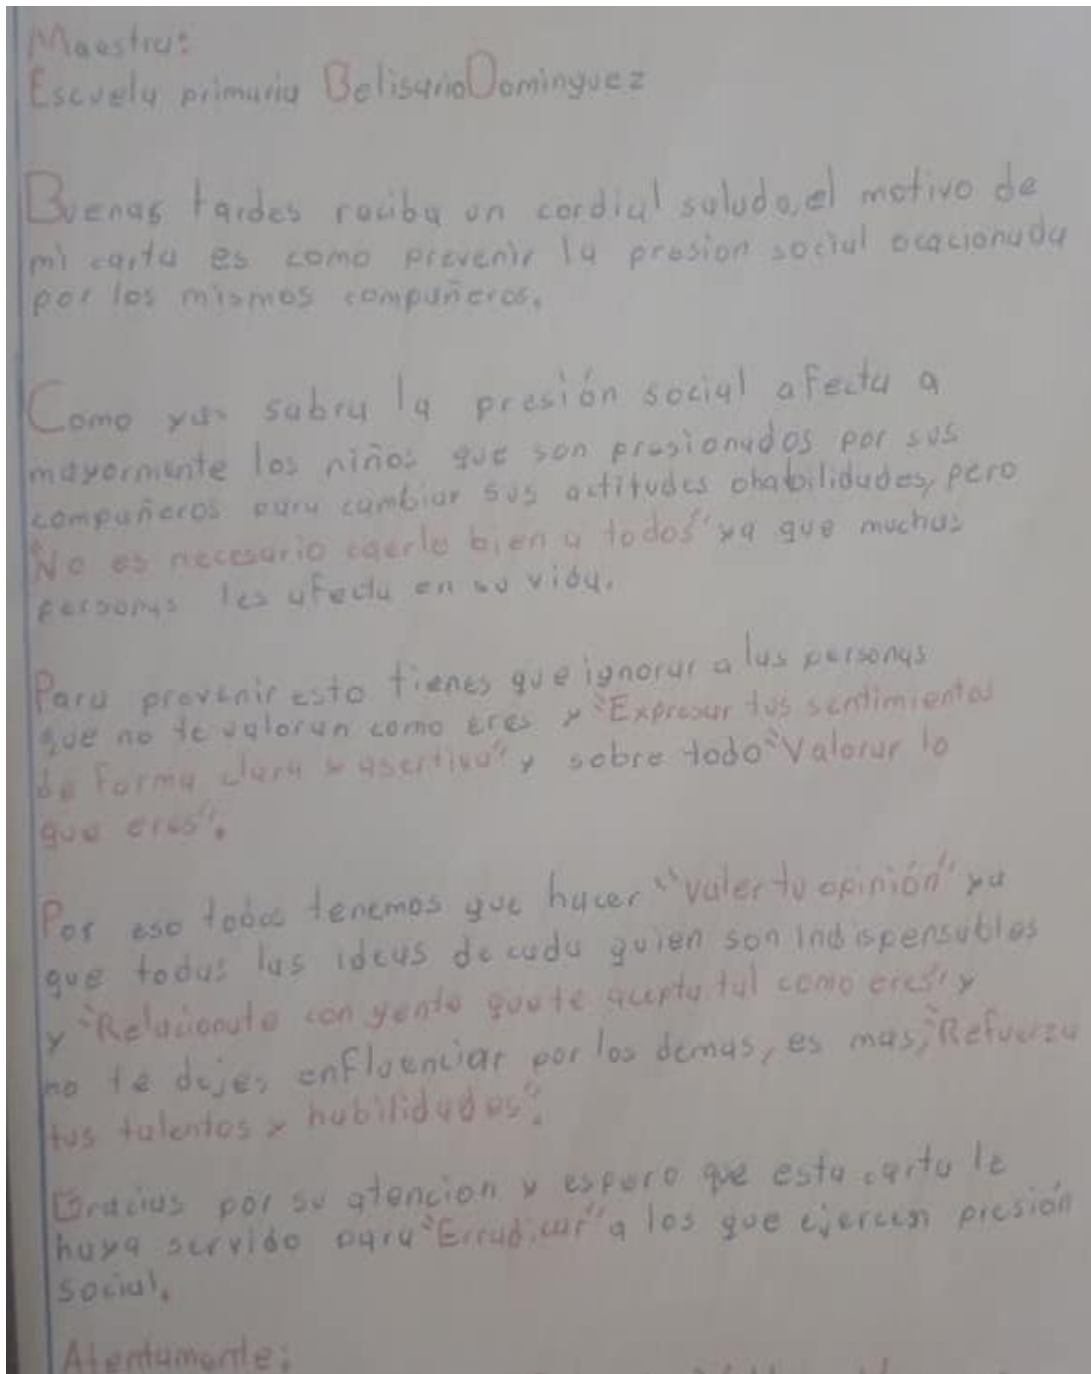 Maestra:
Escuela primaria Belisario Dominguez
Buenas tardes reciba un cordial saludo, el motivo de
mi carta es como prevenir la presion social ocacionada
por los mismos compañeros.
Como ya sabra la presión social afecta a
mayormente los niños que son presionados por sus
compañeros para cambiar sus actitudes o habilidades, pero
"No es necesario caerle bien a todos" ya que muchas
personas les afecta en su vida.
Para prevenir esto tienes que ignorar a las personas
que no te valoran como eres y "Expresar tus sentimientos
de forma clara y asertiva" y sobre todo "Valorar lo
que eres".
Por eso todos tenemos que hacer "valer tu opinión" ya
que todas las ideas de cada quien son indispensables
y "Relacionate con gente que te acepta tal como eres" y
no te dejes enfluenciar por los demas, es mas, "Refuerza
tus talentos y habilidades".
Gracias por su atencion y espero que esta carta le
haya servido para "Erradicar" a los que ejercen presión
social.
Atentamente: